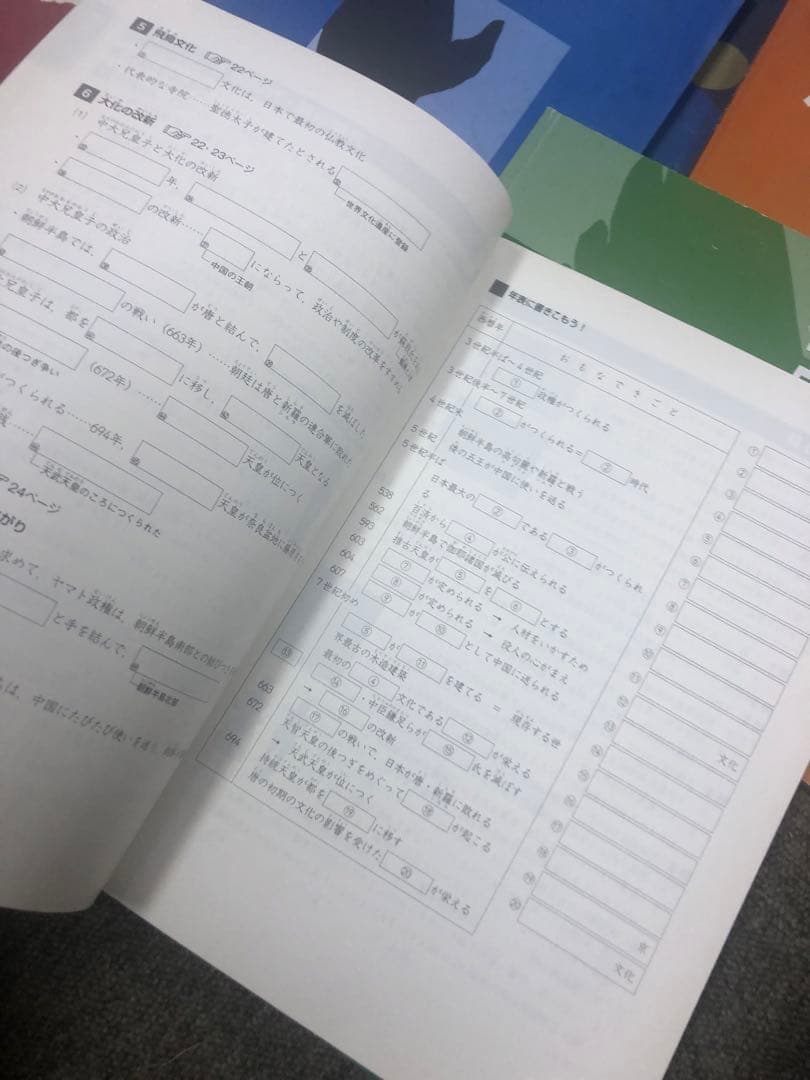 5 飛鳥文化 22ページ
文化は、日本で最初の仏教文化
・代表的な寺院……聖徳太子が建てたとされる
世界文化遺産に登録
6 大化の改新 22・23ページ
(1) 中大兄皇子と大化の改新
年、 と が
の改新…… にならって、政治や制度の改革を
中国の王朝
(2) 中大兄皇子の政治
・朝鮮半島では、 が唐と結んで、 を滅ぼした
の戦い(663年)……朝廷は唐と新羅の連合軍に敗れた
皇子は、都を に移し、 天皇となる
の後つぎ争い (672年)…… 天皇が位につく
つくられる……694年、 天皇が奈良盆地に
天武天皇のころにつくられた
24ページ
がり
求めて、ヤマト政権は、朝鮮半島南部との
と手を結んで、
朝鮮半島北部
は、中国にたびたび使いを送り
年表に書きこもう!
西暦年 おもなできごと
3世紀半ば~4世紀 ① 政権がつくられる
3世紀後半~7世紀 ② がつくられる= ② 時代
4世紀末 朝鮮半島の高句麗や新羅と戦う
5世紀 倭の五王が中国に使いを送る
5世紀半ば 日本最大の ② である ③ がつくられ
る
538 百済から ④ が公に伝えられる
562 朝鮮半島で伽耶諸国が滅びる
593 推古天皇が ⑤ を ⑥ とする
603 ⑦ が定められる → 人材をいかすため
604 ⑧ が定められる → 役人の心がまえ
607 ⑨ が ⑩ として中国に送られる
7世紀初め ⑤ が ⑪ を建てる = 現存する世
界最古の木造建築
最初の ④ 文化である ⑫ が栄える
⑬ ⑭ ・中臣鎌足らが ⑮ 氏を滅ぼす
→ ⑯ の改新
663 ⑰ の戦いで、日本が唐・新羅に敗れる
672 天智天皇の後つぎをめぐって ⑱ が起こる
→ 天武天皇が位につく
694 持統天皇が都を ⑲ に移す
唐の初期の文化の影響を受けた ⑳ が栄える
①
②
③
④
⑤
⑥
⑦
⑧
⑨
⑩
⑪
⑫ 文化
⑬
⑭
⑮
⑯
⑰
⑱
⑲ 京
⑳ 文化